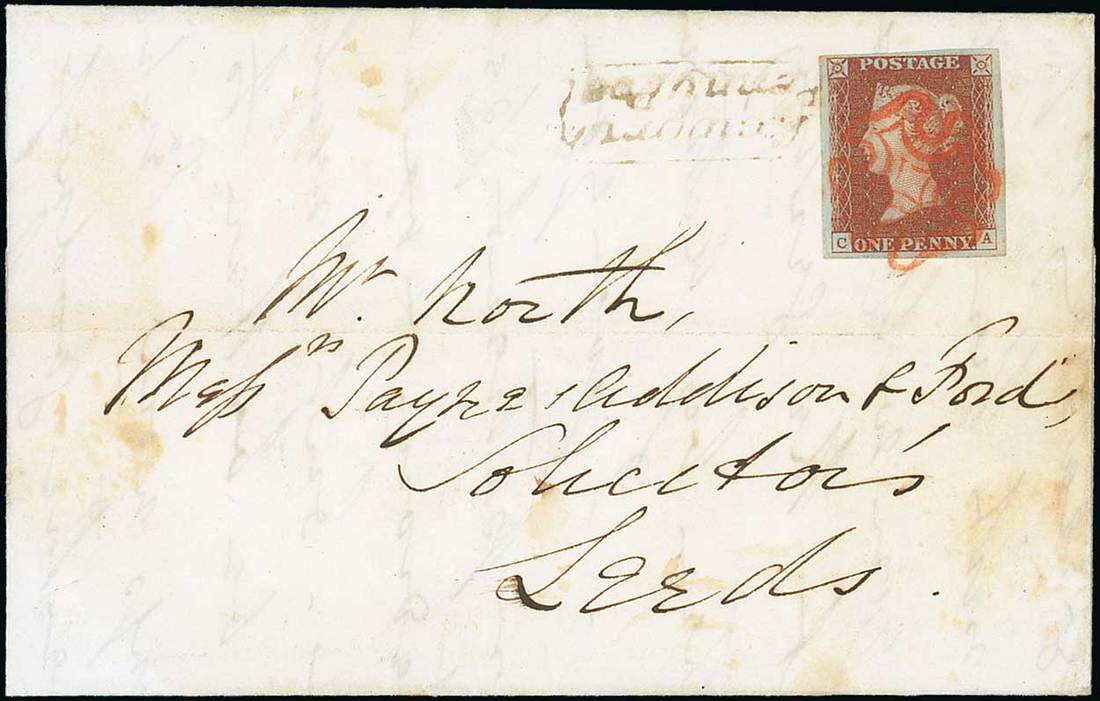 Penny Post
POSTAGE
C ONE PENNY A
Mr. North,
Messrs Payne, Addison & Ford,
Solicitors
Leeds.